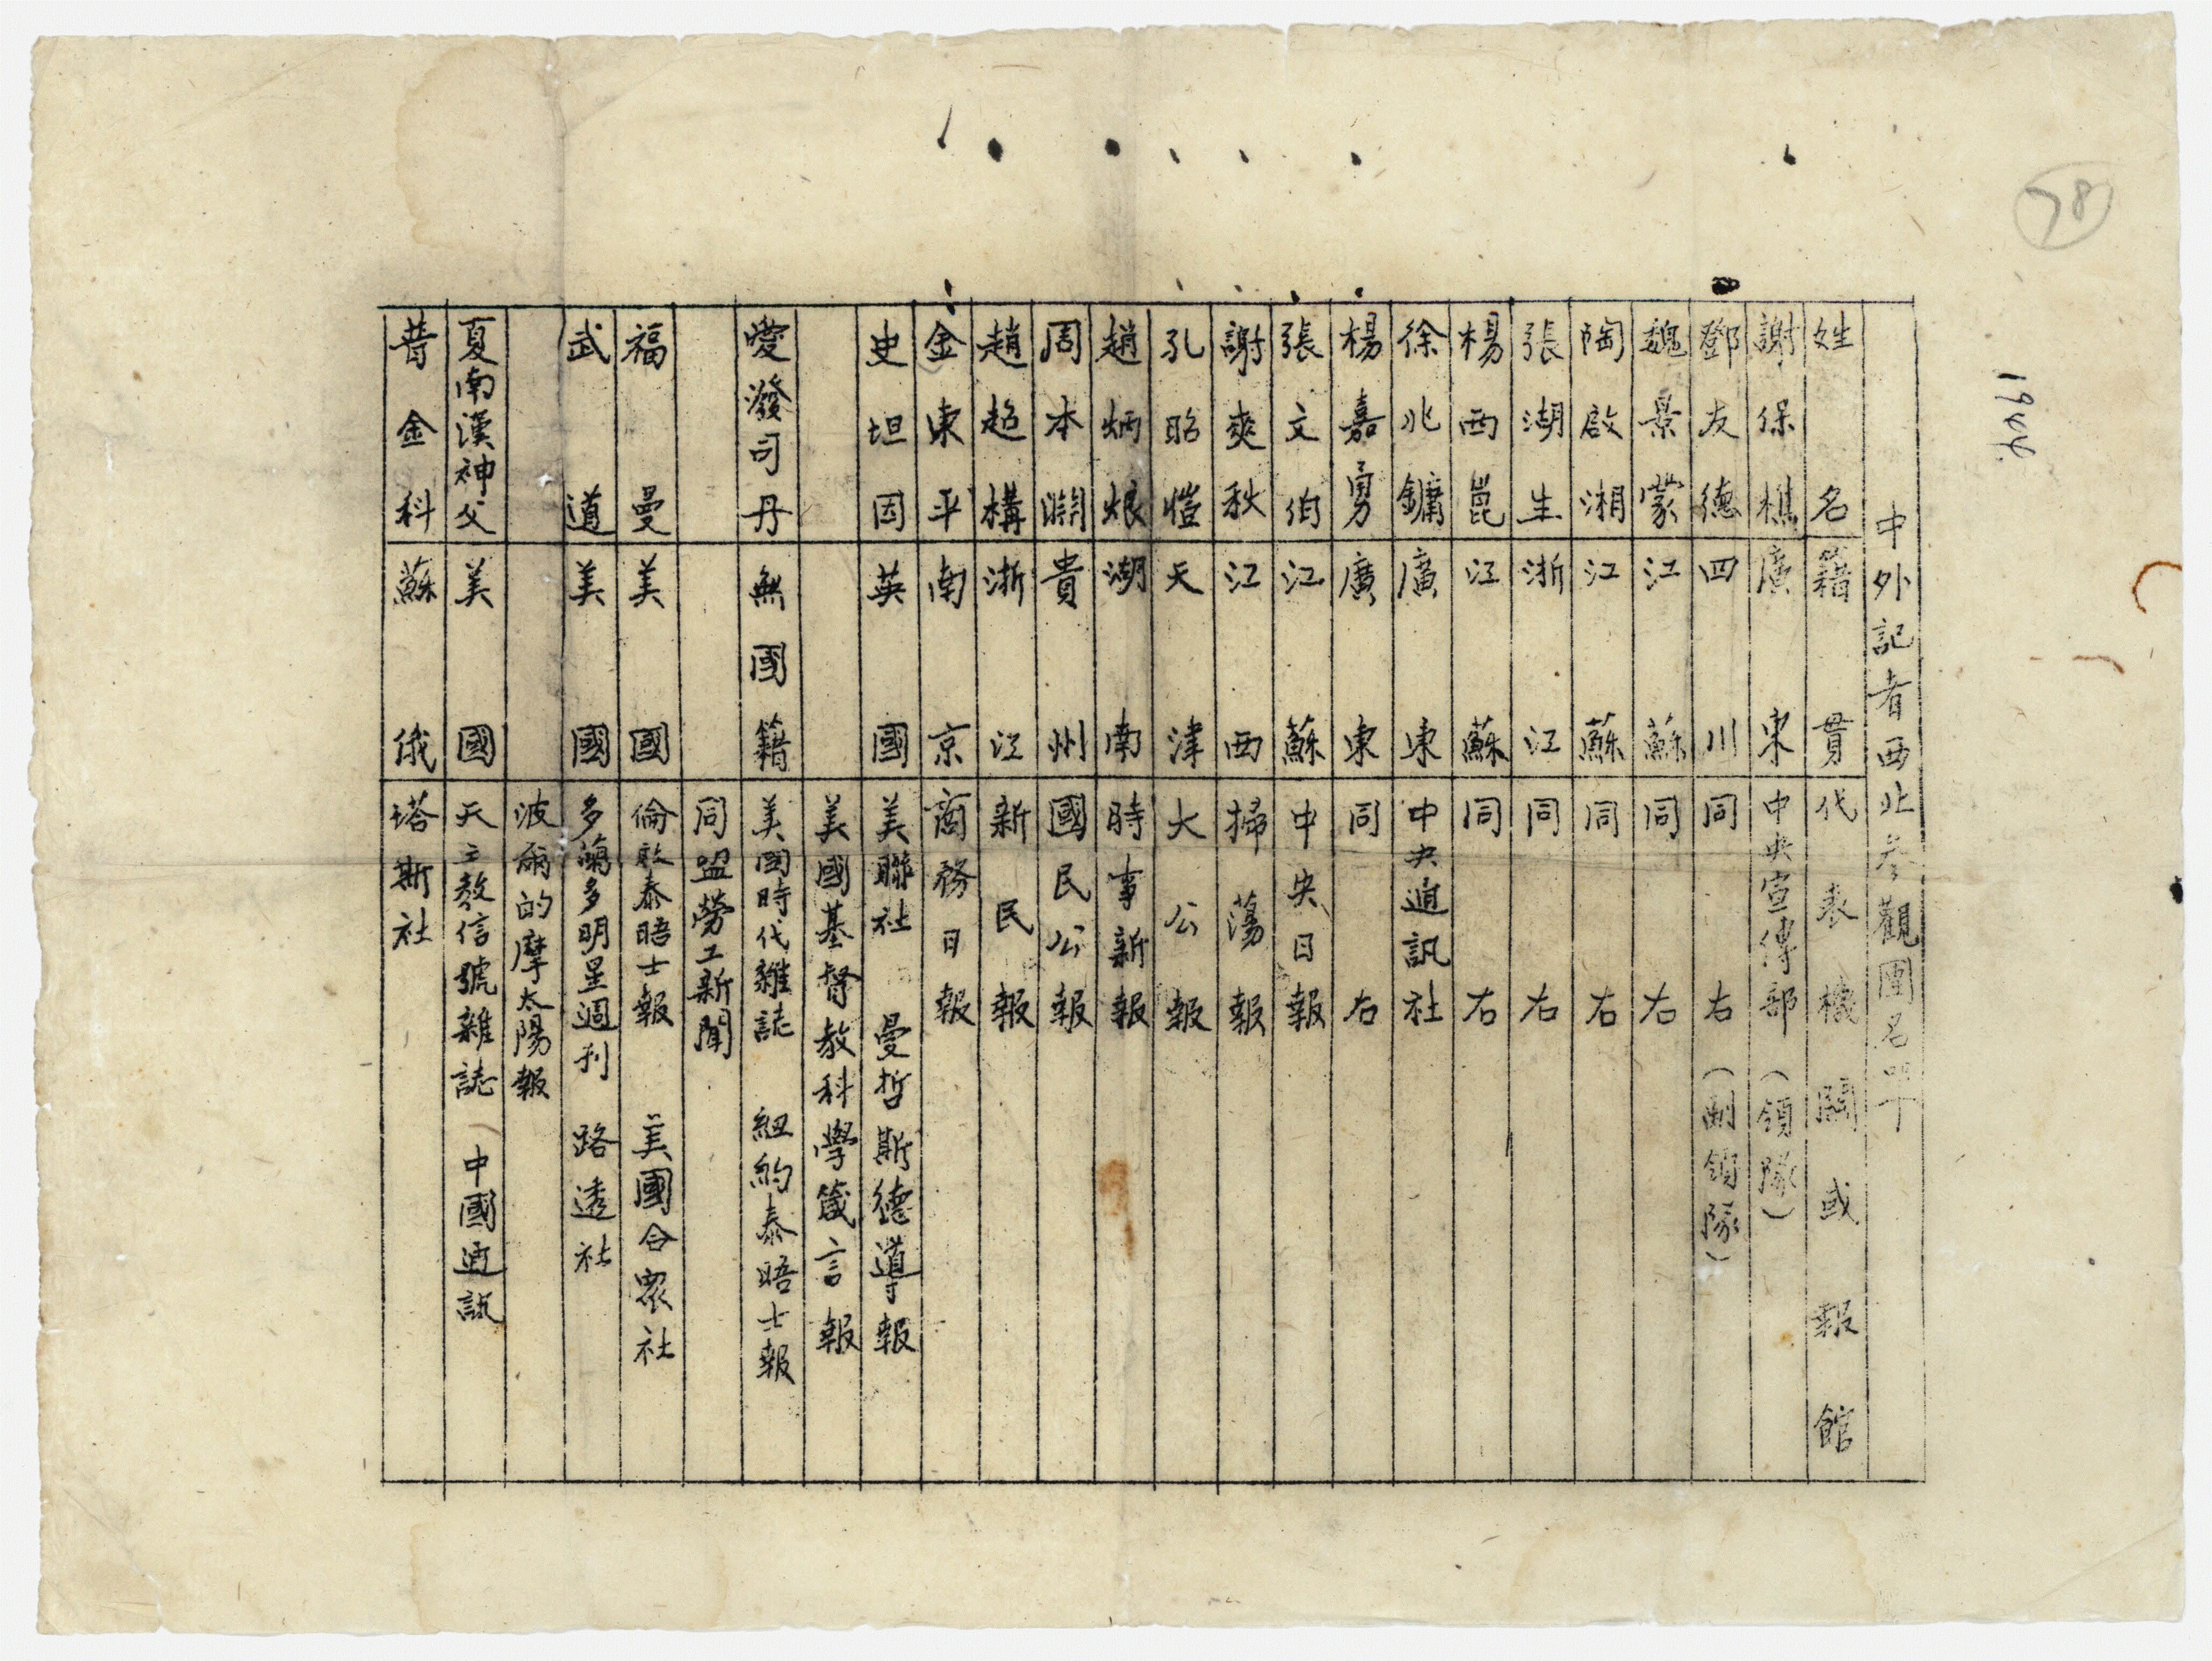 78
1944.
中外記者西北參觀團名單
姓名 籍貫 代表機關或報館
謝保樵 廣東 中央宣傳部（領隊）
鄧友德 四川 同右（副領隊）
魏景蒙 江蘇 同右
陶啟湘 江蘇 同右
張湖生 浙江 同右
楊西崑 江蘇 同右
徐兆鏞 廣東 中央通訊社
楊嘉勇 廣東 同右
張文伯 江蘇 中央日報
謝爽秋 江西 掃蕩報
孔昭愷 天津 大公報
趙炳烺 湖南 時事新報
周本淵 貴州 國民公報
趙超構 浙江 新民報
金東平 南京 商務日報
史坦因 英國 美聯社 曼哲斯德導報
美國基督教科學箴言報
愛潑司丹 無國籍 美国時代雜誌 紐約泰晤士報
同盟勞工新聞
福曼 美國 倫敦泰晤士報 美國合眾社
武道 美國 多蘭多明星週刋 路透社
波爾的摩太陽報
夏南漢神父 美國 天主教信號雜誌 中國通訊
普金科 蘇俄 塔斯社